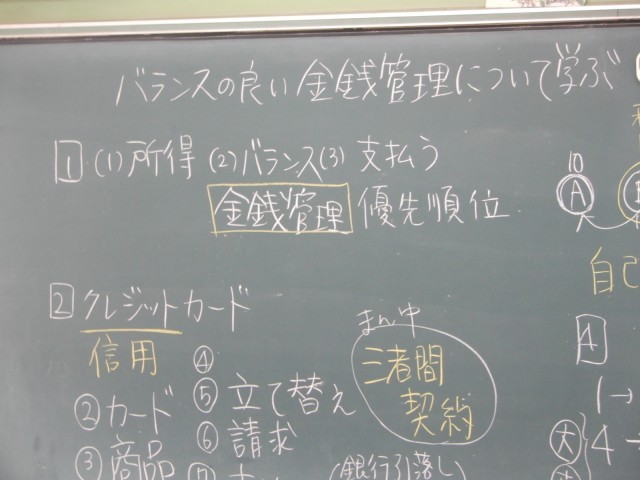 バランスの良い金銭管理について学ぶ
1 (1)所得 (2)バランス(3) 支払う
金銭管理 優先順位
2 クレジットカード
信用
②カード
③商品
④
⑤立て替え
⑥請求
(銀行引落し)
まん中
三者間
契約
10
A
自己
4
1→
大 4→